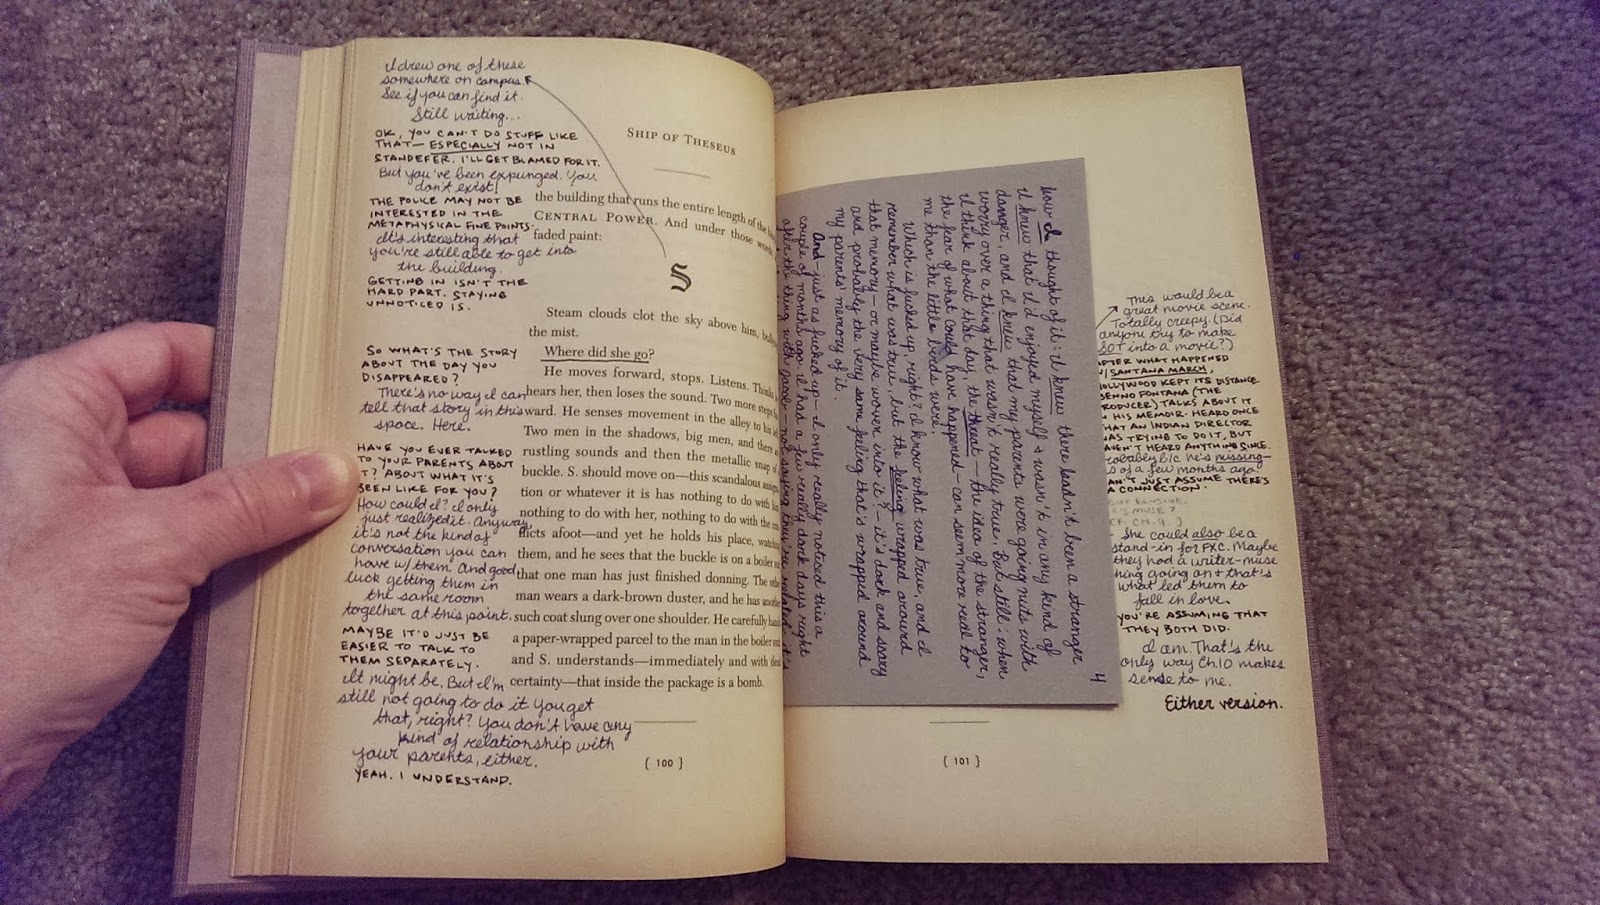 I drew one of these
somewhere on campus.
See if you can find it.
Still waiting...
OK, YOU CAN'T DO STUFF LIKE
THAT—ESPECIALLY NOT IN
STANDEFER. I'LL GET BLAMED FOR IT.
But you've been expunged. You
don't exist!
THE POLICE MAY NOT BE
INTERESTED IN THE
METAPHYSICAL FINE POINTS.
It's interesting that
you're still able to get into
the building.
GETTING IN ISN'T THE
HARD PART. STAYING
UNNOTICED IS.
SO WHAT'S THE STORY
ABOUT THE DAY YOU
DISAPPEARED?
There's no way I can
tell that story in this
space. Here.
HAVE YOU EVER TALKED
TO YOUR PARENTS ABOUT
IT? ABOUT WHAT IT'S
BEEN LIKE FOR YOU?
How could I? I only
just realized it. Anyway,
it's not the kind of
conversation you can
have w/ them. And good
luck getting them in
the same room
together at this point.
MAYBE IT'D JUST BE
EASIER TO TALK TO
THEM SEPARATELY.
It might be. But I'm
still not going to do it. You get
that, right? You don't have any
kind of relationship with
your parents, either.
YEAH. I UNDERSTAND.
SHIP OF THESEUS
the building that runs the entire length of the
CENTRAL POWER. And under those words,
faded paint:
S
Steam clouds clot the sky above him,
the mist.
Where did she go?
He moves forward, stops. Listens.
hears her, then loses the sound. Two more steps
ward. He senses movement in the alley to his
Two men in the shadows, big men, and there
rustling sounds and then the metallic snap of
buckle. S. should move on—this scandalous
tion or whatever it is has nothing to do with
nothing to do with her, nothing to do with the
flicts afoot—and yet he holds his place,
them, and he sees that the buckle is on a boiler
that one man has just finished donning. The
man wears a dark-brown duster, and he has another
such coat slung over one shoulder. He carefully
a paper-wrapped parcel to the man in the boiler
and S. understands—immediately and with
certainty—that inside the package is a bomb.
{ 100 }
4
how I thought of it: I knew there hadn't been a stranger
I knew that I'd enjoyed myself & wasn't in any kind of
danger, and I knew that my parents were going nuts with
worry over a thing that wasn't really true. But still: when
I think about that day, the threat—the idea of the stranger,
the fear of what could have happened—can seem more real to
me than the little birds were.
Which is fucked up, right? I know what was true, and I
remember what was true, but the feeling wrapped around
that memory—or maybe woven into it?—it's dark and scary
and probably the very same feeling that's wrapped around
my parents' memory of it.
And—just as fucked up—I only really noticed this a
couple of months ago. I had a few really dark days right
after the thing with Jacob—not saying they're related. it's
This would be a
great movie scene.
Totally creepy. (Did
anyone try to make
SOT into a movie?)
AFTER WHAT HAPPENED
W/ SANTANA MARCH,
HOLLYWOOD KEPT ITS DISTANCE.
FONTANA (THE
PRODUCER) TALKS ABOUT IT
IN HIS MEMOIR. HEARD ONCE
THAT AN INDIAN DIRECTOR
WAS TRYING TO DO IT, BUT
HAVEN'T HEARD ANYTHING SINCE.
PROBABLY B/C HE'S MISSING—
OF A FEW MONTHS AGO.
CAN'T JUST ASSUME THERE'S
A CONNECTION.
MUSE?
CF. CH. 9.)
She could also be a
stand-in for FXC. Maybe
they had a writer-muse
thing going on & that's
what led them to
fall in love.
YOU'RE ASSUMING THAT
THEY BOTH DID.
I am. That's the
only way Ch. 10 makes
sense to me.
Either version.
{ 101 }